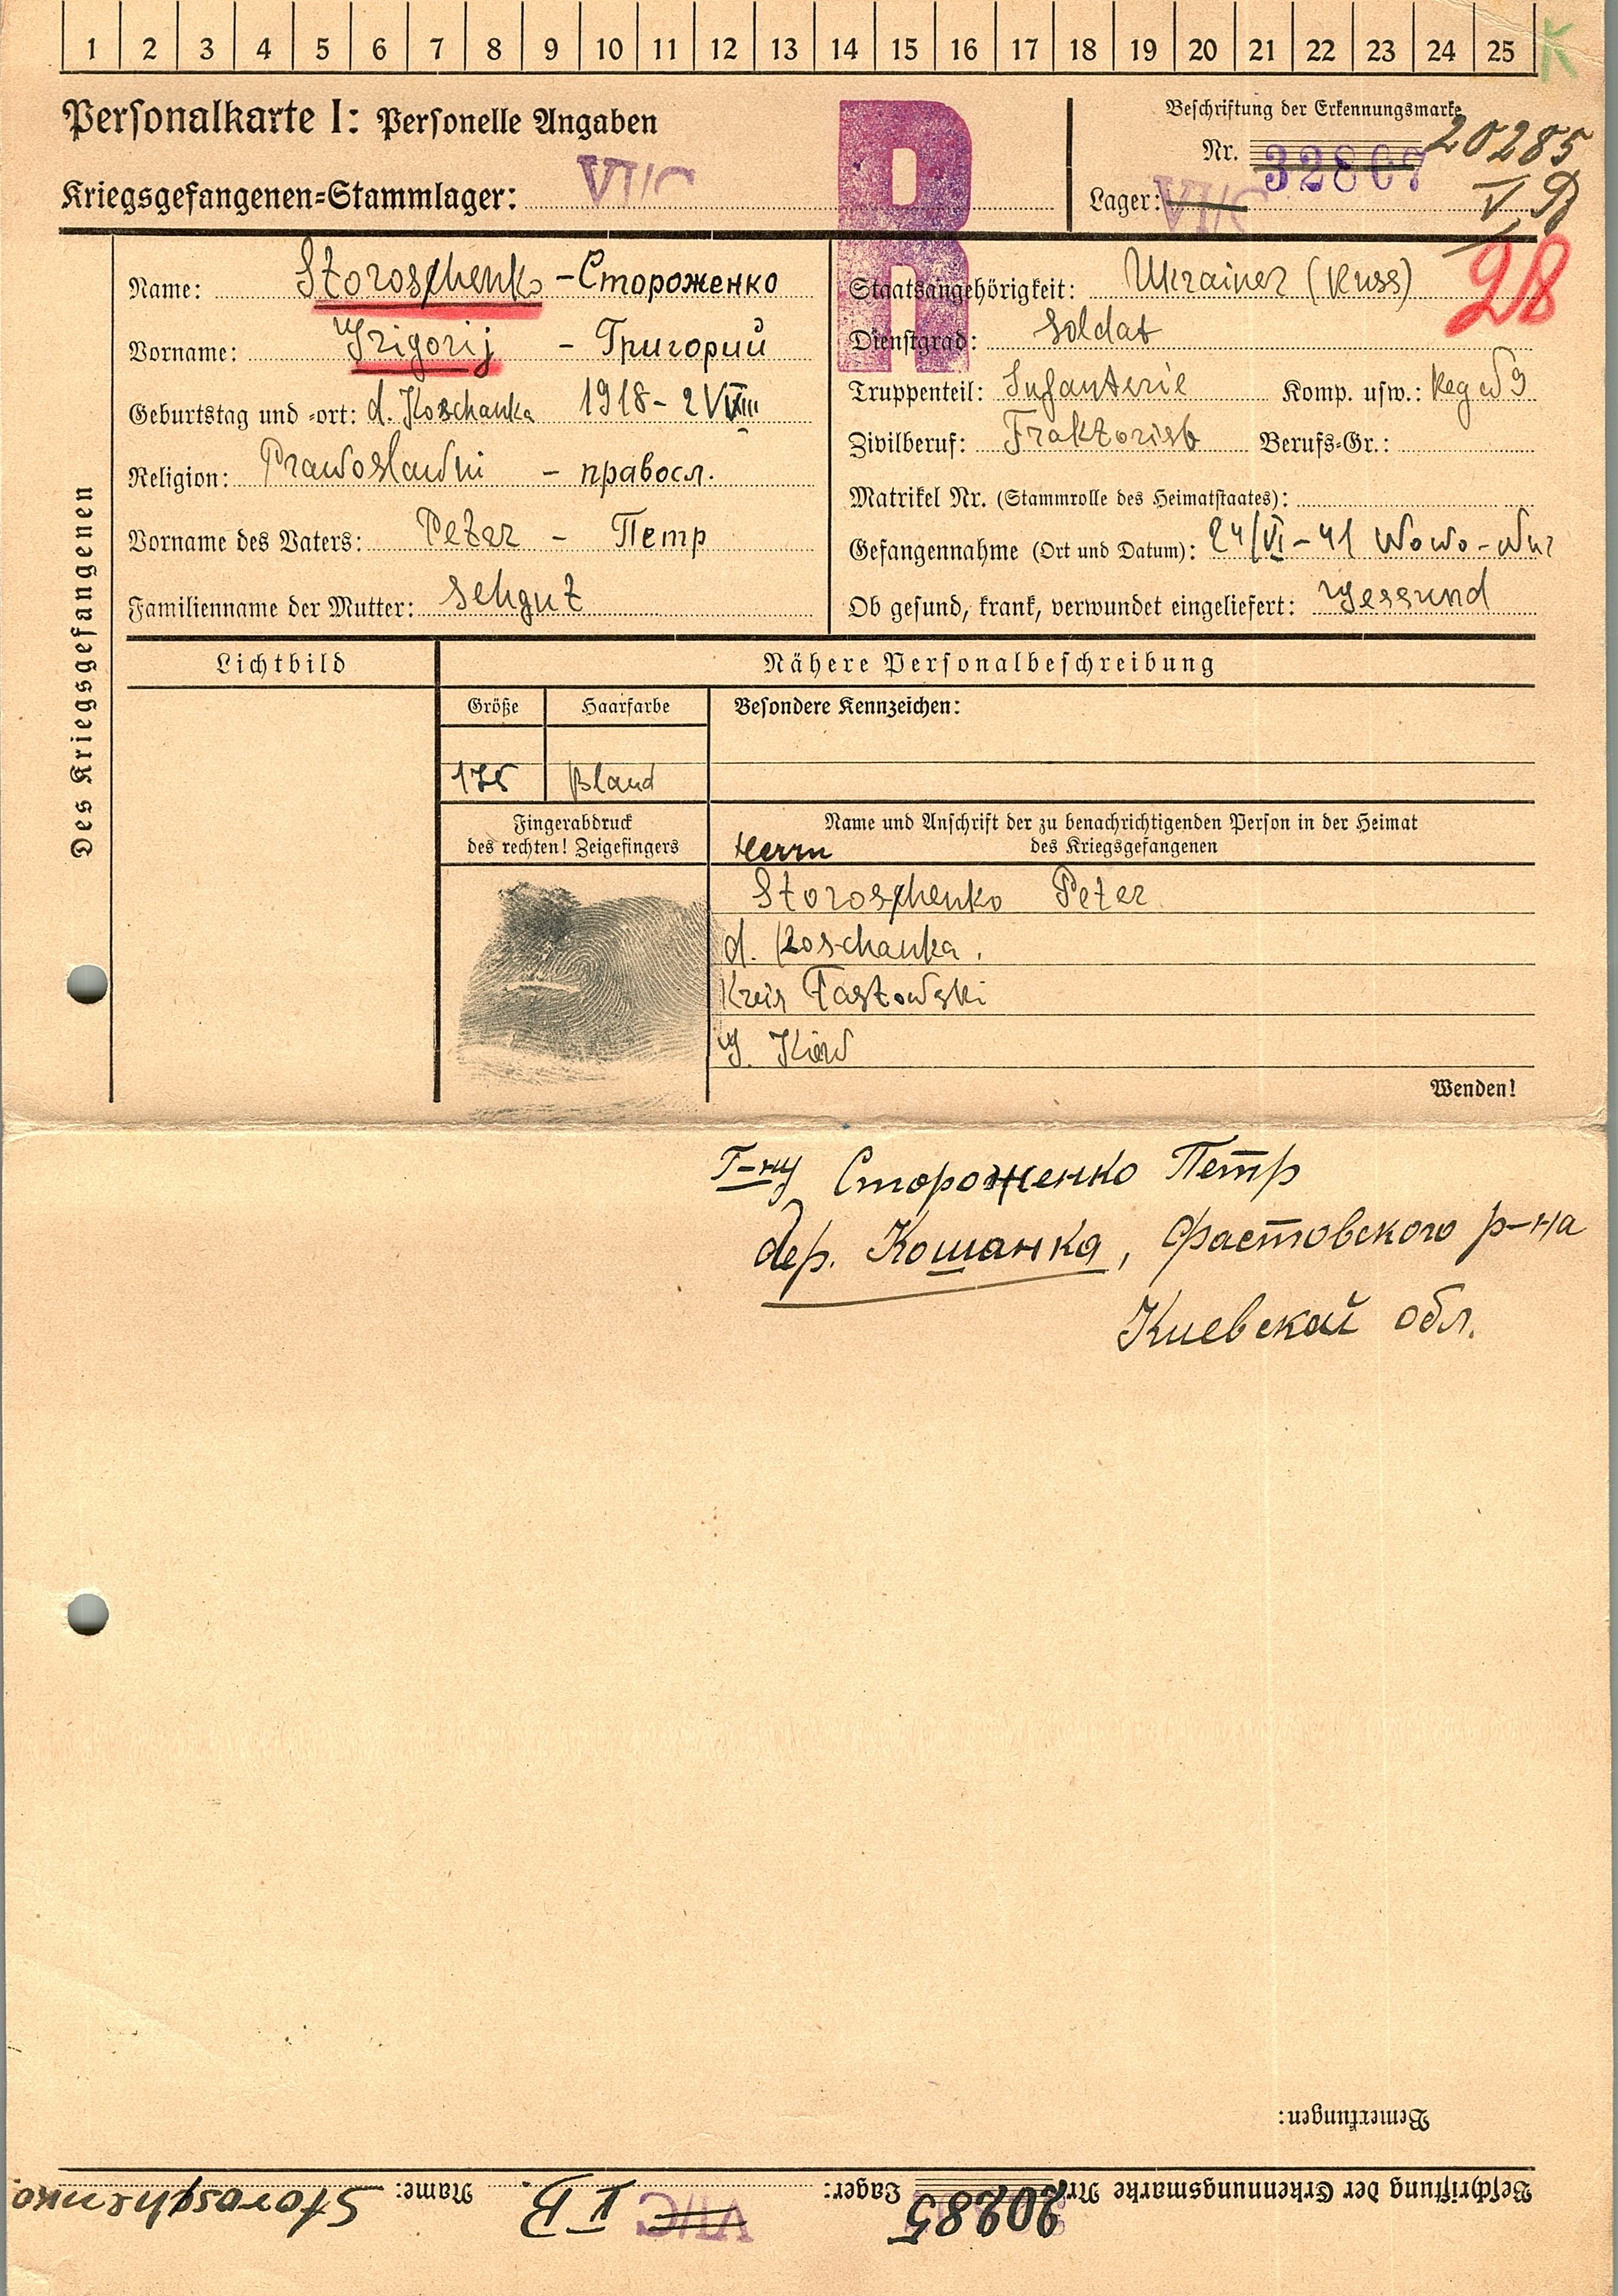 1 2 3 4 5 6 7 8 9 10 11 12 13 14 15 16 17 18 19 20 21 22 23 24 25 K
Personalkarte I: Personelle Angaben
Kriegsgefangenen-Stammlager: VI/C
R
R
Beschriftung der Erkennungsmarke
Nr. 32807 20285
Lager: VI/C V B
28
Des Kriegsgefangenen
Name: Storoschenko - Стороженко
Vorname: Grigorij - Григорий
Geburtstag und -ort: d. Koschanka 1918 - 2
Religion: Prawoslawni - правосл.
Vorname des Vaters: Peter - Петр
Familienname der Mutter: Schgut
Staatsangehörigkeit: Ukrainer (Russ)
Dienstgrad: Soldat
Truppenteil: Infanterie Komp. usw.: Reg
Zivilberuf: Traktorist Berufs-Gr.:
Matrikel Nr. (Stammrolle des Heimatstaates):
Gefangennahme (Ort und Datum): 24/VI - 41 Wowo-
Ob gesund, krank, verwundet eingeliefert: Gessund
Lichtbild
Nähere Personalbeschreibung
Größe Haarfarbe Besondere Kennzeichen:
175 Bland
Fingerabdruck
des rechten! Zeigefingers
Name und Anschrift der zu benachrichtigenden Person in der Heimat
des Kriegsgefangenen
Herrn
Storoschenko Peter
d. Koschanka.
Kreis Fastowski
G. Kiew
Wenden!
Г-ну Стороженко Петр
дер. Кошанка, Фастовского р-на
Киевской обл.
Bemerkungen:
Beschriftung der Erkennungsmarke Nr. 20285 Lager: VI/C V B Name: Storoschenko.